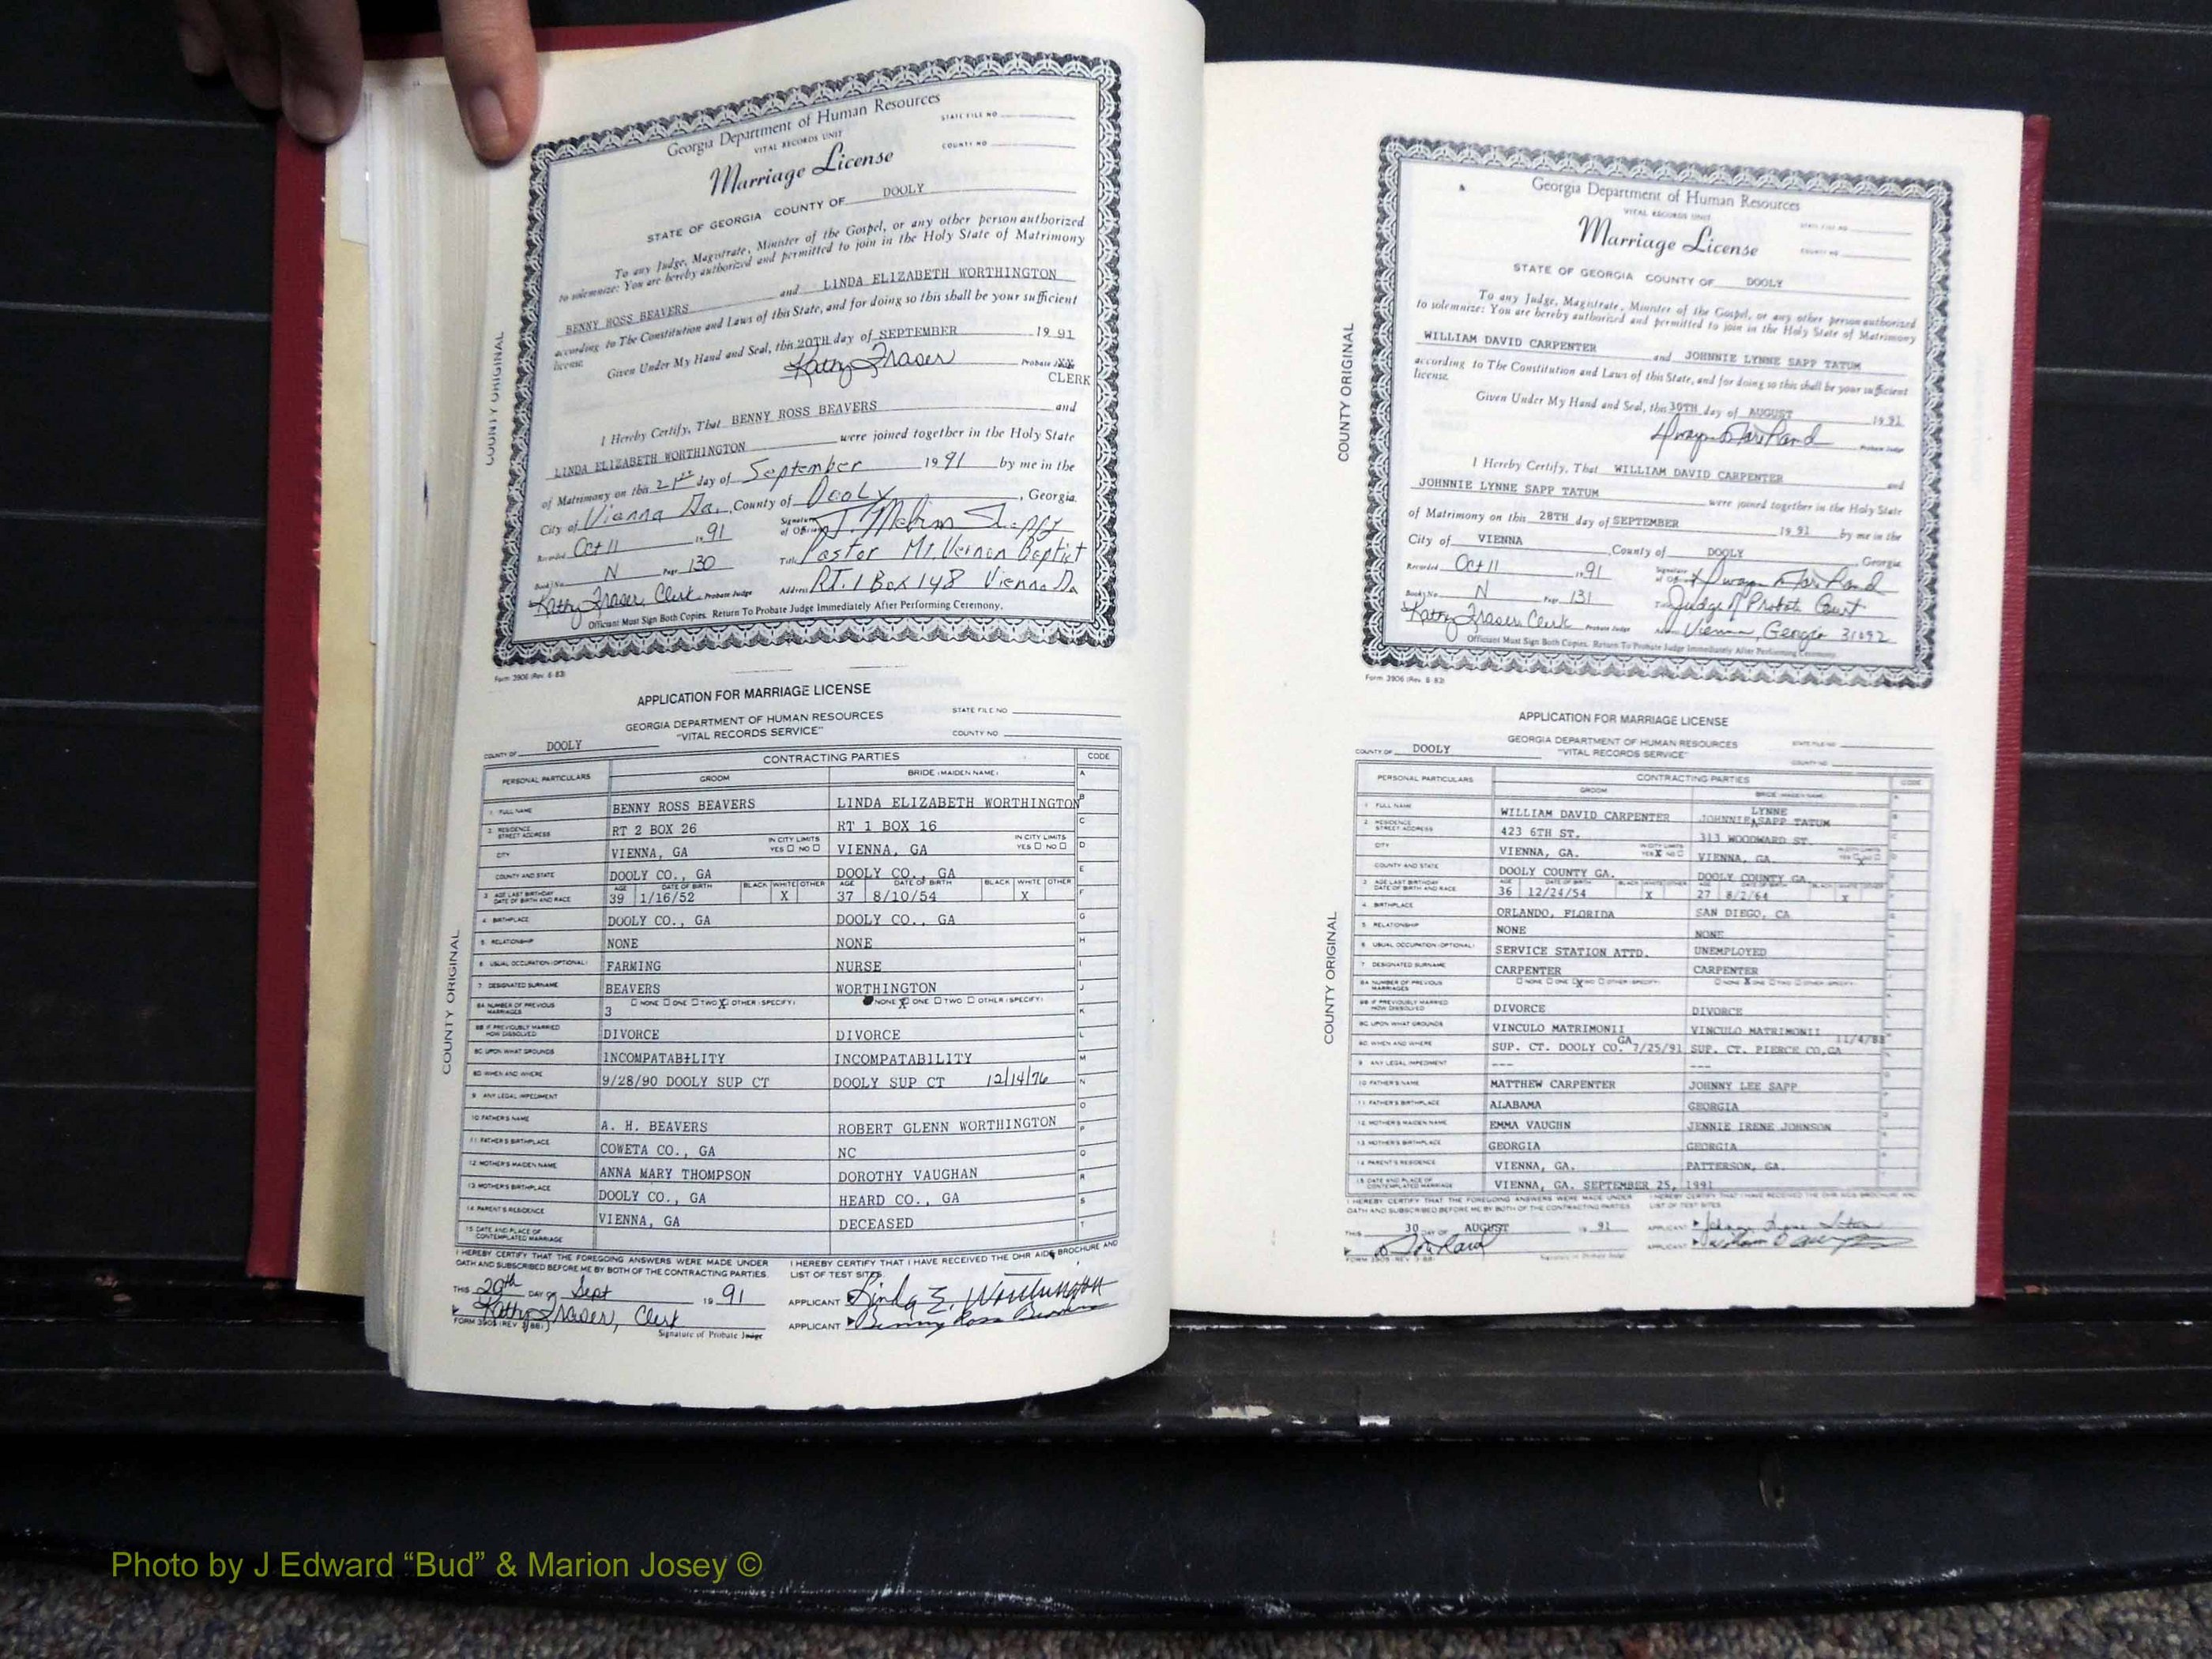 Georgia Department of Human Resources
VITAL RECORDS UNIT
STATE FILE NO
Marriage License
COUNTY NO
STATE OF GEORGIA COUNTY OF DOOLY
To any Judge, Magistrate, Minister of the Gospel, or any other person authorized
to solemnize: You are hereby authorized and permitted to join in the Holy State of Matrimony
BENNY ROSS BEAVERS and LINDA ELIZABETH WORTHINGTON
according to The Constitution and Laws of this State, and for doing so this shall be your sufficient
license.
Given Under My Hand and Seal, this 20TH day of SEPTEMBER 19 91
Kathy Fraser Probate
CLERK
I Hereby Certify, That BENNY ROSS BEAVERS and
LINDA ELIZABETH WORTHINGTON were joined together in the Holy State
of Matrimony on this 21st day of September 19 91 by me in the
City of Vienna Ga. County of Dooly, Georgia.
Recorded Oct 11 19 91 Signature of Officiant
Book No. N Page 130 Title Pastor Mt. Vernon Baptist
Kathy Fraser, Clerk Probate Judge Address RT. 1 Box 148 Vienna Ga
Officiant Must Sign Both Copies. Return To Probate Judge Immediately After Performing Ceremony.
COUNTY ORIGINAL
Form 3906 (Rev. 6-83)
APPLICATION FOR MARRIAGE LICENSE
GEORGIA DEPARTMENT OF HUMAN RESOURCES
"VITAL RECORDS SERVICE"
STATE FILE NO
COUNTY NO
COUNTY OF DOOLY
PERSONAL PARTICULARS CONTRACTING PARTIES CODE
GROOM BRIDE (MAIDEN NAME)
1 FULL NAME BENNY ROSS BEAVERS LINDA ELIZABETH WORTHINGTON
2 RESIDENCE STREET ADDRESS RT 2 BOX 26 RT 1 BOX 16
CITY VIENNA, GA IN CITY LIMITS YES ☐ NO ☐ VIENNA, GA IN CITY LIMITS YES ☐ NO ☐
COUNTY AND STATE DOOLY CO., GA DOOLY CO., GA
3 AGE LAST BIRTHDAY DATE OF BIRTH AND RACE AGE 39 DATE OF BIRTH 1/16/52 BLACK WHITE X OTHER AGE 37 DATE OF BIRTH 8/10/54 BLACK WHITE X OTHER
4 BIRTHPLACE DOOLY CO., GA DOOLY CO., GA
5 RELATIONSHIP NONE NONE
6 USUAL OCCUPATION (OPTIONAL) FARMING NURSE
7 DESIGNATED SURNAME BEAVERS WORTHINGTON
8A NUMBER OF PREVIOUS MARRIAGES ☐ NONE ☐ ONE ☐ TWO X OTHER (SPECIFY) 3 NONE X ONE ☐ TWO ☐ OTHER (SPECIFY)
8B IF PREVIOUSLY MARRIED HOW DISSOLVED DIVORCE DIVORCE
8C UPON WHAT GROUNDS INCOMPATABILITY INCOMPATABILITY
8D WHEN AND WHERE 9/28/90 DOOLY SUP CT DOOLY SUP CT 12/14/76
9 ANY LEGAL IMPEDIMENT
10 FATHER'S NAME A. H. BEAVERS ROBERT GLENN WORTHINGTON
11 FATHER'S BIRTHPLACE COWETA CO., GA NC
12 MOTHER'S MAIDEN NAME ANNA MARY THOMPSON DOROTHY VAUGHAN
13 MOTHER'S BIRTHPLACE DOOLY CO., GA HEARD CO., GA
14 PARENT'S RESIDENCE VIENNA, GA DECEASED
15 DATE AND PLACE OF CONTEMPLATED MARRIAGE
I HEREBY CERTIFY THAT THE FOREGOING ANSWERS WERE MADE UNDER
OATH AND SUBSCRIBED BEFORE ME BY BOTH OF THE CONTRACTING PARTIES.
I HEREBY CERTIFY THAT I HAVE RECEIVED THE DHR AIDS BROCHURE AND
LIST OF TEST SITES.
THIS 20th DAY OF Sept 19 91 APPLICANT Linda E. Worthington
Kathy Fraser, Clerk APPLICANT Benny Ross Beavers
FORM 3905 (REV 3/88) Signature of Probate Judge
COUNTY ORIGINAL
Georgia Department of Human Resources
VITAL RECORDS UNIT
STATE FILE NO
Marriage License
COUNTY NO
STATE OF GEORGIA COUNTY OF DOOLY
To any Judge, Magistrate, Minister of the Gospel, or any other person authorized
to solemnize: You are hereby authorized and permitted to join in the Holy State of Matrimony
WILLIAM DAVID CARPENTER and JOHNNIE LYNNE SAPP TATUM
according to The Constitution and Laws of this State, and for doing so this shall be your sufficient
license.
Given Under My Hand and Seal, this 30TH day of AUGUST 19 91
Probate Judge
I Hereby Certify, That WILLIAM DAVID CARPENTER and
JOHNNIE LYNNE SAPP TATUM were joined together in the Holy State
of Matrimony on this 28TH day of SEPTEMBER 19 91 by me in the
City of VIENNA, County of DOOLY, Georgia
Recorded Oct 11 19 91 Signature of Officiant
Book No. N Page 131 Title Judge of Probate Court
Kathy Fraser, Clerk Probate Judge Vienna, Georgia 31092
Officiant Must Sign Both Copies. Return To Probate Judge Immediately After Performing Ceremony.
COUNTY ORIGINAL
Form 3906 (Rev. 6-83)
APPLICATION FOR MARRIAGE LICENSE
GEORGIA DEPARTMENT OF HUMAN RESOURCES
"VITAL RECORDS SERVICE"
STATE FILE NO
COUNTY NO
COUNTY OF DOOLY
PERSONAL PARTICULARS CONTRACTING PARTIES CODE
GROOM BRIDE (MAIDEN NAME)
LYNNE
1 FULL NAME WILLIAM DAVID CARPENTER JOHNNIE SAPP TATUM
2 RESIDENCE STREET ADDRESS 423 6TH ST. 313 WOODWARD ST.
CITY VIENNA, GA. IN CITY LIMITS YES X NO ☐ VIENNA, GA.
COUNTY AND STATE DOOLY COUNTY GA. DOOLY COUNTY GA.
3 AGE LAST BIRTHDAY DATE OF BIRTH AND RACE 36 12/24/54 X 27 8/2/64 X
4 BIRTHPLACE ORLANDO, FLORIDA SAN DIEGO, CA
5 RELATIONSHIP NONE NONE
6 USUAL OCCUPATION (OPTIONAL) SERVICE STATION ATTD. UNEMPLOYED
7 DESIGNATED SURNAME CARPENTER CARPENTER
8A NUMBER OF PREVIOUS MARRIAGES ☐ NONE ☐ ONE X TWO ☐ OTHER (SPECIFY) ☐ NONE X ONE ☐ TWO ☐ OTHER (SPECIFY)
8B IF PREVIOUSLY MARRIED HOW DISSOLVED DIVORCE DIVORCE
8C UPON WHAT GROUNDS VINCULO MATRIMONII VINCULO MATRIMONII
8D WHEN AND WHERE SUP. CT. DOOLY CO. GA 7/25/91 SUP. CT. PIERCE CO, GA
9 ANY LEGAL IMPEDIMENT --- ---
10 FATHER'S NAME MATTHEW CARPENTER JOHNNY LEE SAPP
11 FATHER'S BIRTHPLACE ALABAMA GEORGIA
12 MOTHER'S MAIDEN NAME EMMA VAUGHN JENNIE IRENE JOHNSON
13 MOTHER'S BIRTHPLACE GEORGIA GEORGIA
14 PARENT'S RESIDENCE VIENNA, GA. PATTERSON, GA.
15 DATE AND PLACE OF CONTEMPLATED MARRIAGE VIENNA, GA. SEPTEMBER 25, 1991
I HEREBY CERTIFY THAT THE FOREGOING ANSWERS WERE MADE UNDER
OATH AND SUBSCRIBED BEFORE ME BY BOTH OF THE CONTRACTING PARTIES
LIST OF TEST SITES
THIS 30 DAY OF AUGUST 19 91 APPLICANT
APPLICANT
Signature of Probate Judge
COUNTY ORIGINAL
Photo by J Edward “Bud” & Marion Josey ©